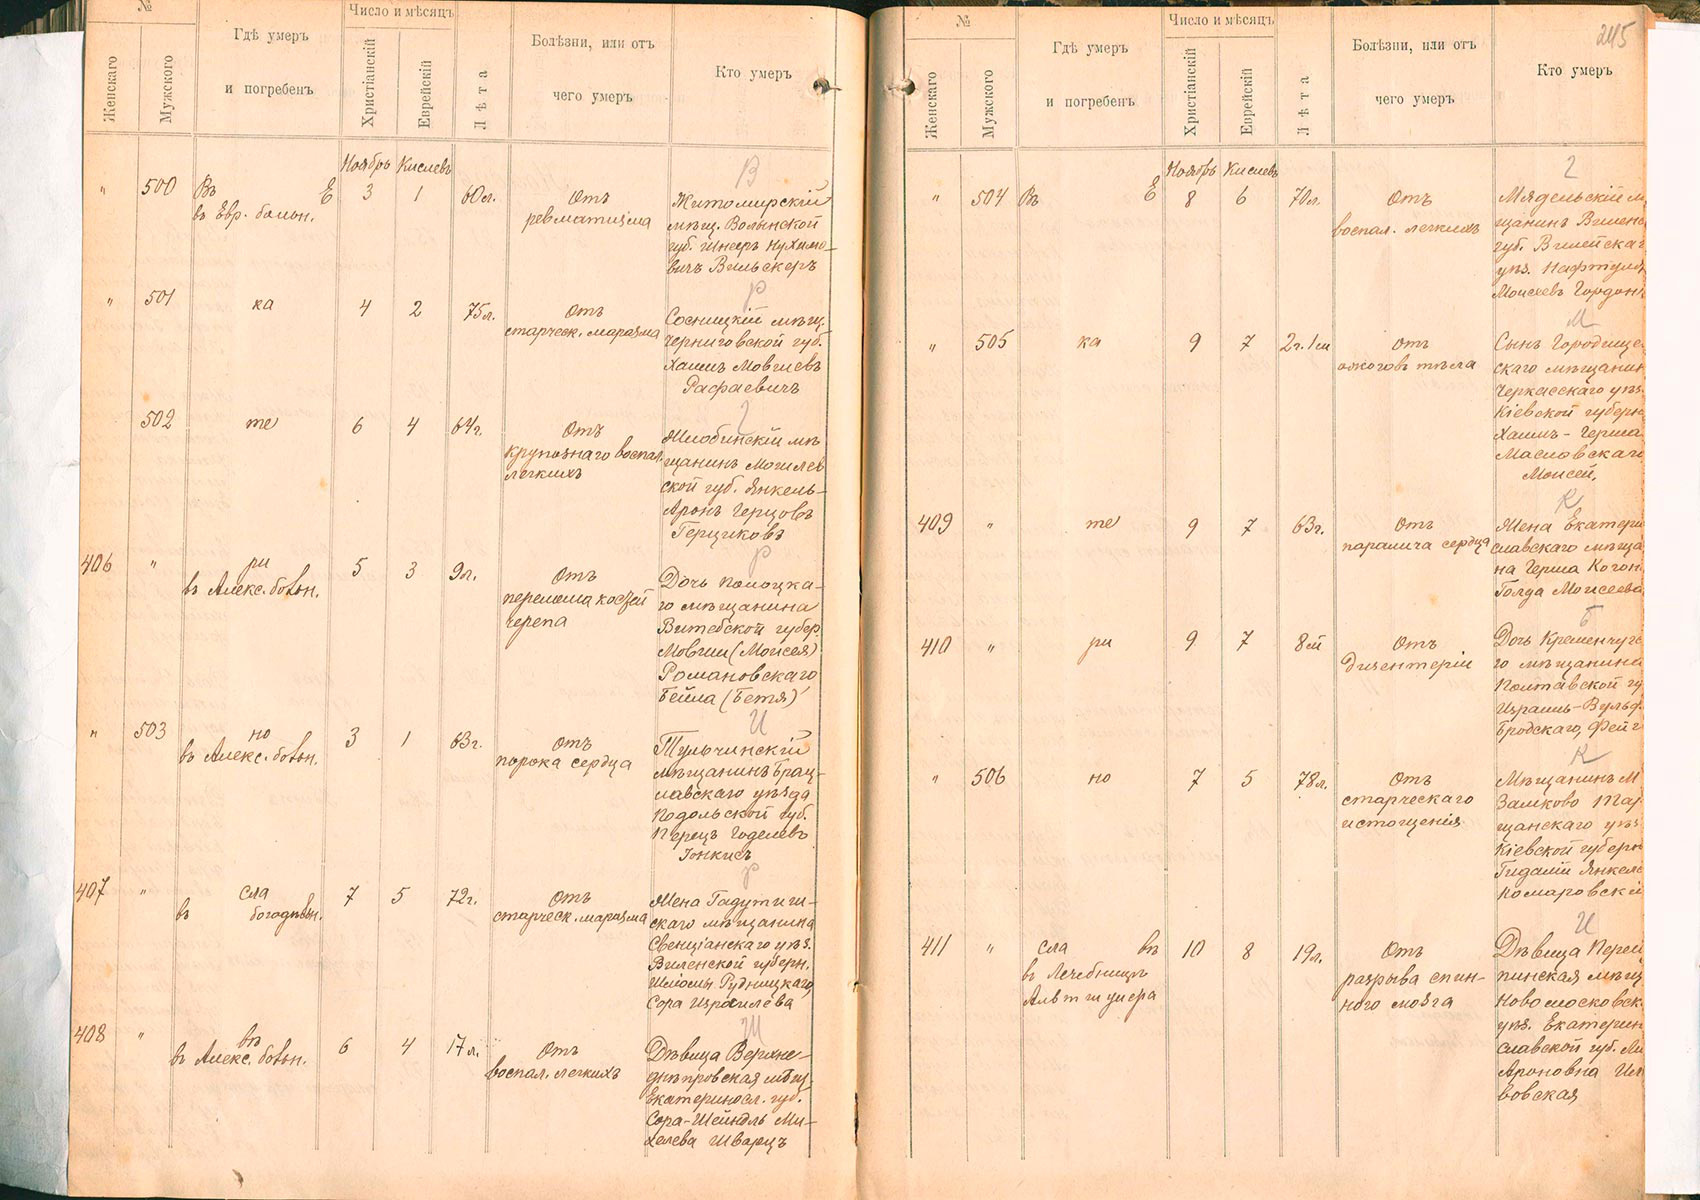 №
Число и мѣсяцъ
Женскаго
Мужского
Гдѣ умеръ
и погребенъ
Христіанскій
Еврейскій
Лѣта
Болѣзни, или отъ
чего умеръ
Кто умеръ
Ноябрь Кислевъ
В
" 500 Въ Е 3 1 60 л. Отъ
въ Евр. больн.
ревматизма
Житомирскій
мѣщ. Волынской
губ. Шнееръ Нухимо-
вичъ Вильскеръ
Р
" 501 ка 4 2 75 л. Отъ
старческ. маразма
Сосницкій мѣщ.
Черниговской губ.
Хаимъ Мовшевъ
Рафаевичъ
Г
502 те 6 4 64 г. Отъ
крупознаго воспал.
легкихъ
Жлобинскій мѣ
щанинъ Могилев
ской губ. Янкель-
Аронъ Герцовъ
Герциковъ
Р
406 " ри 5 3 9 л. Отъ
въ Алекс. больн.
перелома костей
черепа
Дочь Полоцка-
го мѣщанина
Витебской губер.
Мовши (Моисея)
Романовскаго
Бейла (Бетя)
И
" 503 но 3 1 63 г. Отъ
въ Алекс. больн.
порока сердца
Тульчинскій
мѣщанинъ Брац-
лавскаго уѣзда
Подольской губ.
Перецъ Годелевъ
Іонкисъ
Р
407 " сла 7 5 72 г. Отъ
въ богадѣльн.
старческ. маразма
Жена Гадутиш-
скаго мѣщанина
Свенціанскаго уѣз.
Виленской губерн.
Шломы Рудницкаго,
Сора Израилева
Ш
408 " въ 6 4 17 л. Отъ
въ Алекс. больн.
воспал. легкихъ
Дѣвица Верхне-
днѣпровская мѣщ.
Екатериносл. губ.
Сора-Шейндль Ми-
хелева Шварцъ
245
№
Число и мѣсяцъ
Женскаго
Мужского
Гдѣ умеръ
и погребенъ
Христіанскій
Еврейскій
Лѣта
Болѣзни, или отъ
чего умеръ
Кто умеръ
Ноябрь Кислевъ
Г
" 504 Въ Е 8 6 70 л. Отъ
воспал. легкихъ
Мядельскій м
щанинъ Виленс
губ. Вилейскаг
уѣз. Нафтоли
Моисеевъ Гордонъ
М
" 505 ка 9 7 2 г. 1 м Отъ
ожоговъ тѣла
Сынъ Городище
скаго мѣщанин
Черкасскаго уѣз.
Кіевской губерн
Хаимъ-Герша
Масловскаго
Моисей,
К
409 " те 9 7 63 г. Отъ
паралича сердца
Жена Екатери
славскаго мѣща
на Герша Коган
Голда Моисеева
Б
410 " ри 9 7 8 м Отъ
дизентеріи
Дочь Кременчугс
го мѣщанина
Полтавской гу
Израиль-Вульф
Бродскаго, Фейг
К
" 506 но 7 5 78 л. Отъ
старческаго
истощенія
Мѣщанинъ М
Замково Тар
щанскаго уѣз
Кіевской губерн
Гидалій Янкеле
Комаровскій
И
411 " сла въ 10 8 19 л. Отъ
въ Лечебницѣ
Альтшулера
разрыва спин-
ного мозга
Дѣвица Переще
пинская мѣщ
Новомосковск
уѣз. Екатерин
славской губ. Ли
Ароновна Ил
вовская